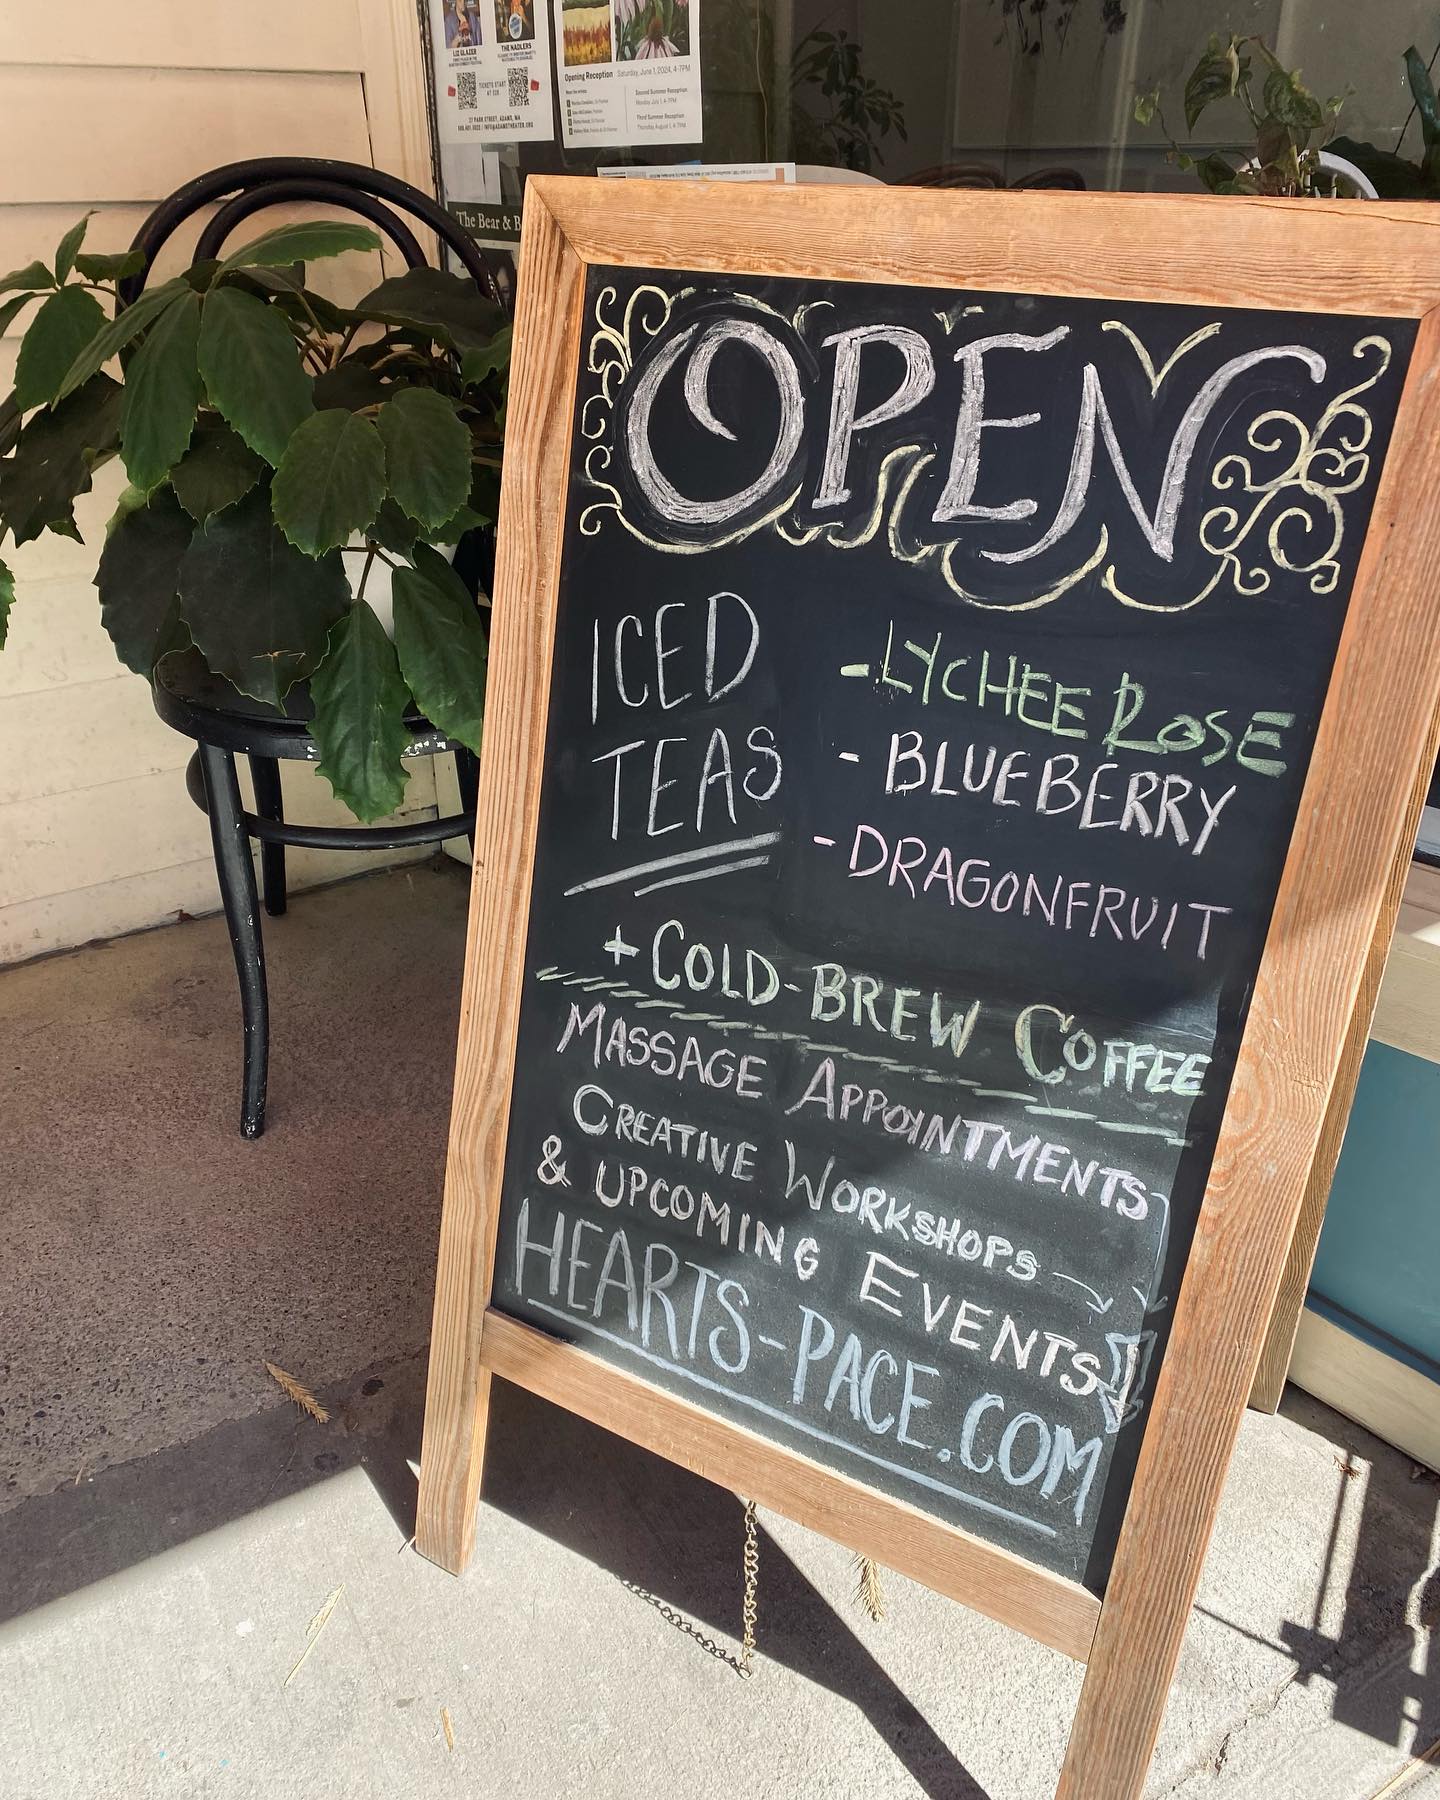 LIZ GLAZER
THE NADLERS
TICKETS START
AT $20
27 PARK STREET, ADAMS, MA
Opening Reception Saturday, June 1, 2024, 4-7PM
Meet the artists
Second Summer Reception
Monday July 1, 4-7PM
Third Summer Reception
Thursday August 1, 4-7PM
The Bear & B
OPEN
ICED
TEAS
- LYCHEE ROSE
- BLUEBERRY
- DRAGONFRUIT
+ COLD-BREW COFFEE
MASSAGE APPOINTMENTS
CREATIVE WORKSHOPS
& UPCOMING EVENTS
HEARTS-PACE.COM